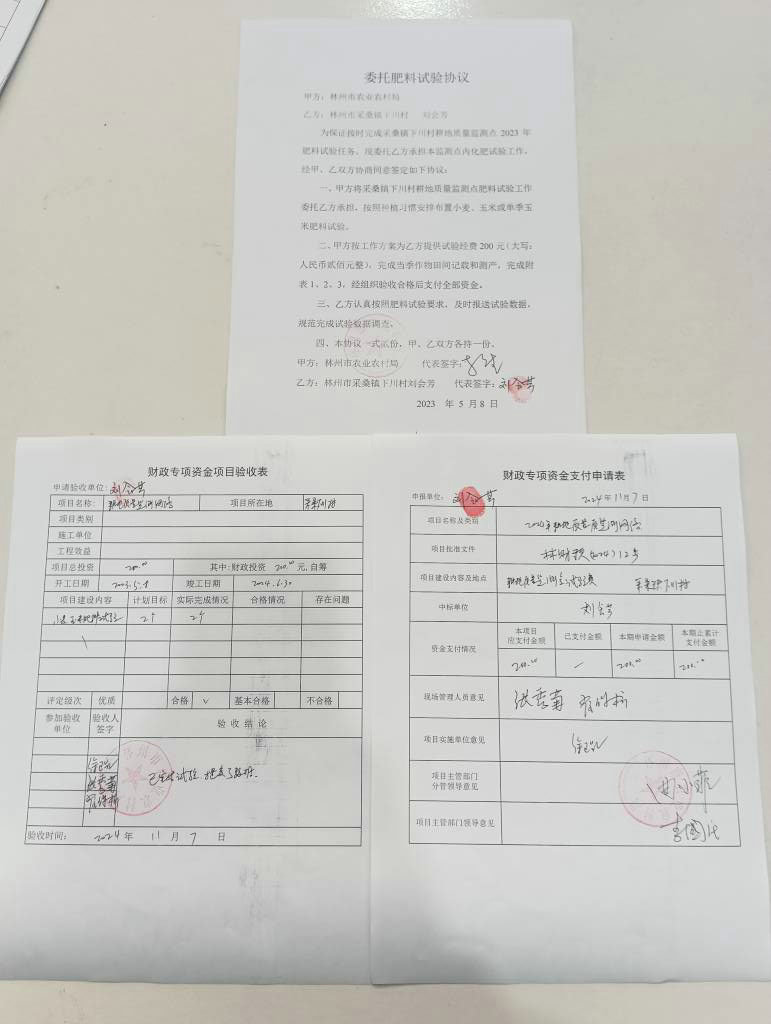 委托肥料试验协议
甲方：林州市农业农村局
乙方：林州市采桑镇下川村 刘会芳
为保证按时完成采桑镇下川村耕地质量监测点 2023 年
肥料试验任务，现委托乙方承担本监测点内化肥试验工作，
经甲、乙双方协商同意签定如下协议：
一、甲方将采桑镇下川村耕地质量监测点肥料试验工作
委托乙方承担，按照种植习惯安排布置小麦、玉米或单季玉
米肥料试验。
二、甲方按工作方案为乙方提供试验经费 200 元（大写：
人民币贰佰元整），完成当季作物田间记载和测产，完成附
表 1、2、3，经组织验收合格后支付全部资金。
三、乙方认真按照肥料试验要求，及时报送试验数据，
规范完成试验数据调查。
四、本协议一式贰份，甲、乙双方各持一份。
甲方：林州市农业农村局 代表签字：
乙方：林州市采桑镇下川村刘会芳 代表签字：刘会芳
2023 年 5 月 8 日
财政专项资金项目验收表
申请验收单位：刘会芳
项目名称： 耕地质量监测网络 项目所在地 采桑下川村
项目类别
施工单位
工程效益
项目总投资 200.00 其中：财政投资 200.00 元，自筹
开工日期 2023.5.8 竣工日期 2024.6.30
项目建设内容 计划目标 实际完成情况 合格情况 存在问题
2个 2个
评定级次 优质 合格 √ 基本合格 不合格
参加验收单位 验收人签字 验收结论
已完成试验
验收时间： 2024 年 11 月 7 日
财政专项资金支付申请表
申报单位：刘会芳 2024年11月7日
项目名称及类别 2024年耕地质量监测网络
项目批准文件 林财预(2024)12号
项目建设内容及地点 采桑镇下川村
中标单位 刘会芳
资金支付情况 本项目应支付金额 已支付金额 本期申请金额 本期止累计支付金额
200.00 — 200.00 200.00
现场管理人员意见
项目实施单位意见
项目主管部门分管领导意见
项目主管部门领导意见